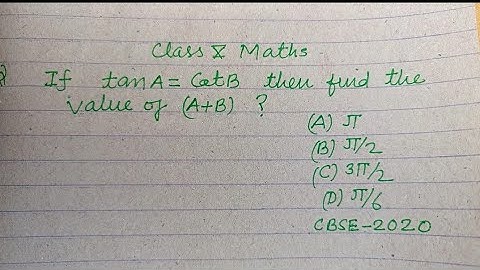 Class X Maths
If tanA = CotB then find the
value of (A+B) ?
(A) π
(B) π/2
(C) 3π/2
(D) π/6
CBSE-2020